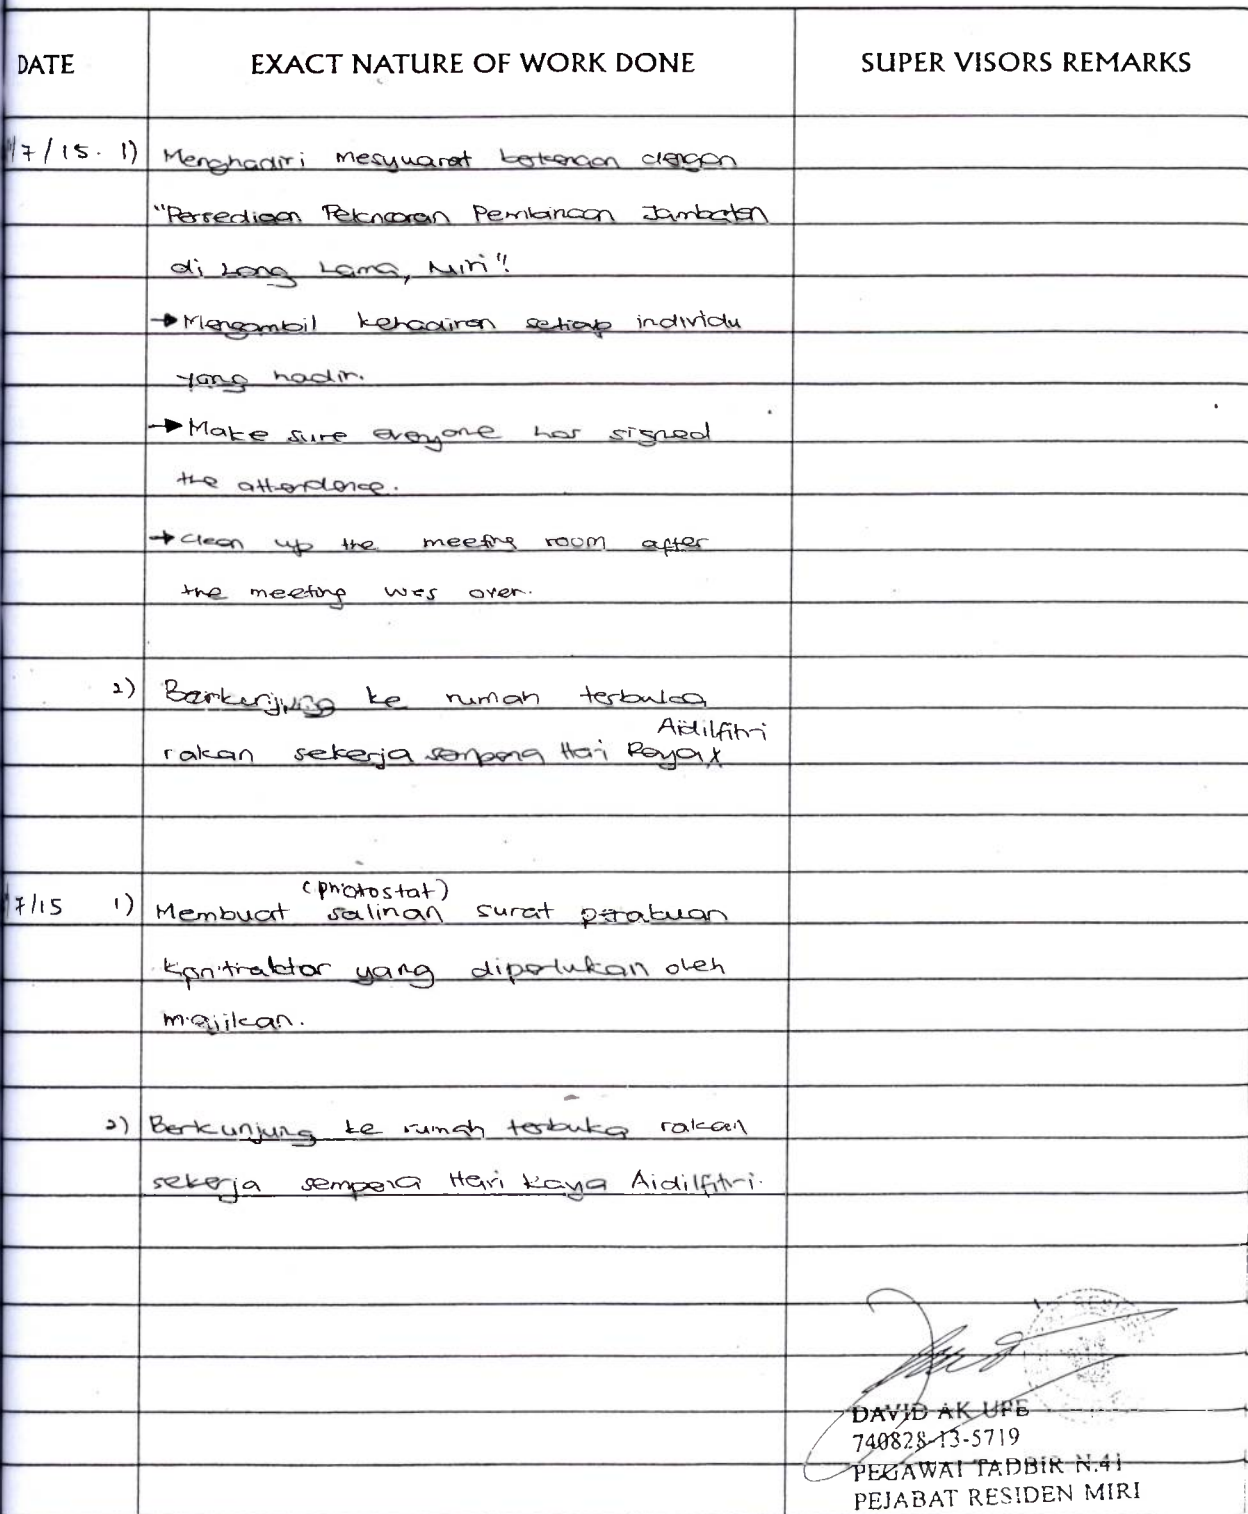 DATE EXACT NATURE OF WORK DONE SUPER VISORS REMARKS
7/15. 1) Menghadiri mesyuarat berkenaan dengan
"Persediaan Pelancaran Pembinaan Jambatan
di Long Lama, Miri".
→ Mengambil kehadiran setiap individu
yang hadir.
→ Make sure everyone has signed
the attendance.
→ Clean up the meeting room after
the meeting was over.
2) Berkunjung ke rumah terbuka
Aidilfitri
rakan sekerja sempena Hari Raya
7/15 1) Membuat salinan surat perakuan
(photostat)
kontraktor yang diperlukan oleh
majikan.
2) Berkunjung ke rumah terbuka rakan
sekerja sempena Hari Raya Aidilfitri.
DAVID AK UPE
740828-13-5719
PEGAWAI TADBIR N.41
PEJABAT RESIDEN MIRI